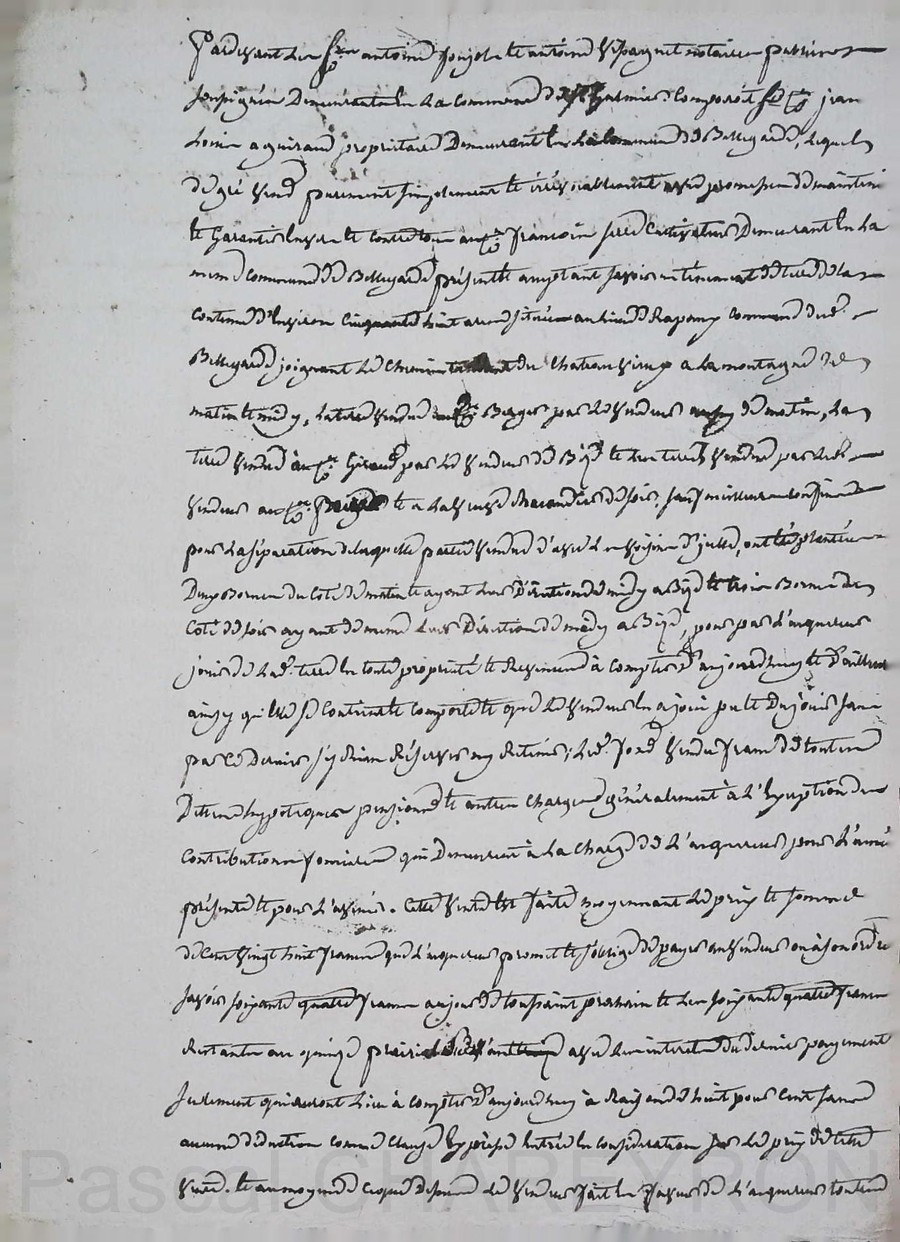 Pardevant les Srs antoine et antoine notaires publics
soussignés Demeurants en La Commune de Comparoit Sr jean
Louis aguiraud propriétaire Demeurant en La Commune de Bellegarde, Lequel
de gré vend purement simplement et irrévocablement avec promesse de maintenir
et Garantir Envers et Contre tous au Sr francois Cultivateur Demeurant En La
même Commune de Bellegarde présent et acceptant savoir un tenement de terre de la
Contenue d'Environ Cinquante huit ares située au lieu de Commune dud.
Bellegarde joignant Le Chemin du Chateau vieux a la montagne de
matin et midy, La terre vendue au Sr Berger par Le Vendeur de matin, La
terre vendue au Sr Giraud par Le Vendeur de Bize et terres vendues par Led.
vendeur au Sr et a La veuve de soir, sauf meilleurs confins
pour La séparation de laquelle partie vendue d'avec Les voisins d'icelle, ont été plantées
Deux Bornes du Coté de matin et ayant Leur Direction de midy a Bize et trois Bornes du
Coté de soir ayant de meme Leur Direction de midy a Bize, pour par L'acquereur
jouir de Lad. terre En toute propriété et Revenus à Compter d'aujourdhuy et D'ailleurs
ainsy qu'elle se Contient et Comporte et que Le Vendeur En a joui pu et Du jouir sans
par Ce Dernier s'y Rien Réserver ny Retenir, Led. fond vendu franc de toutes
Dettes hypoteques pensions et autres Charges généralement à L'Exception des
Contributions foncieres qui Demeurent à La Charge de L'acquereur pour L'année
présente et pour L'avenir. Cette vente Est faite moyennant Le prix et somme
de Cent vingt huit francs que L'acquereur promet et s'oblige de payer au Vendeur ou à son ordre
savoir soixante quatre francs au jour de toussaint prochain et Les soixante quatre francs
Restants au quinze prairial avec Les interets du dernier payement
seulement qui auront Lieu à Compter d'aujourdhuy à Raison de huit pour Cent sans
aucune déduction comme Clause Expresse Entrée En Considération Le prix de Cette
vente. et au moyen de Ce que Dessus Le Vendeur fait En faveur de L'acquereur toutes
Pascal CHAREYRON